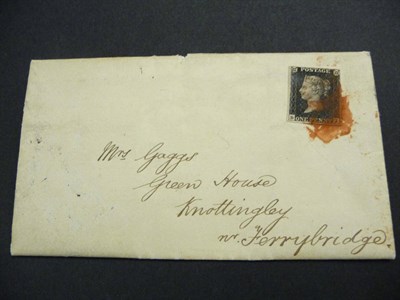 POSTAGE
ONE PENNY
Mrs Gaggs
Green House
Knottingley
nr Ferrybridge.